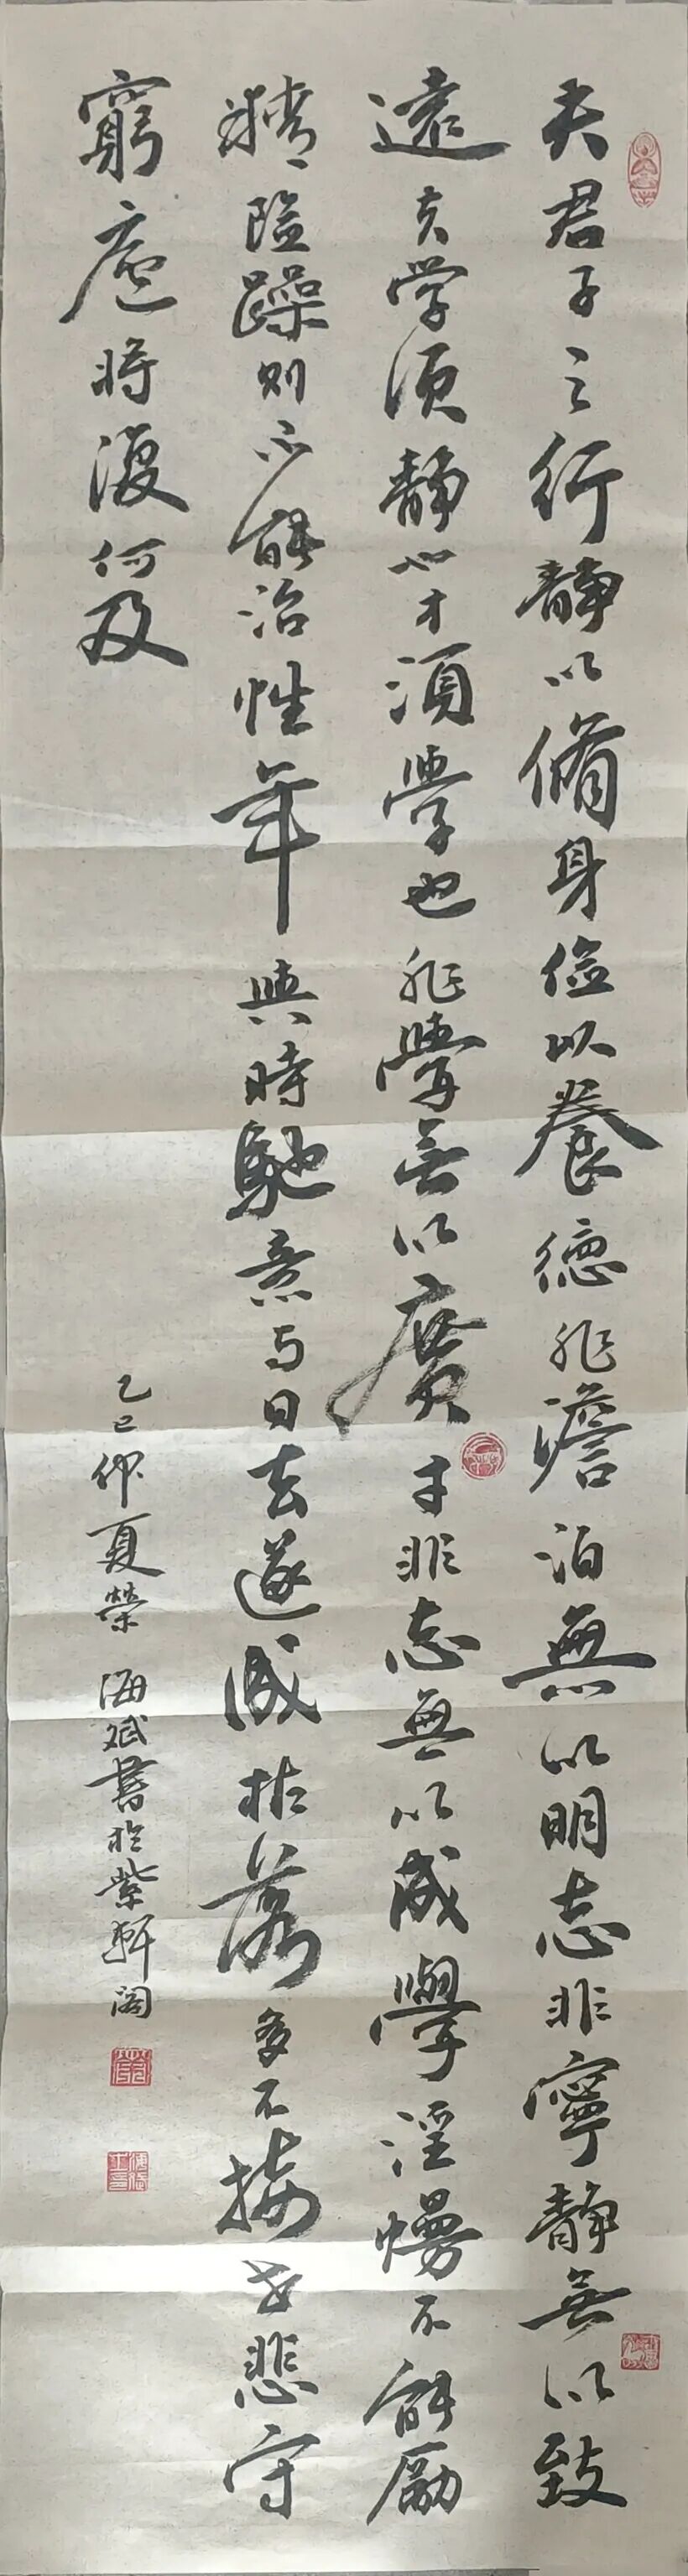 夫君子之行静以脩身儉以養德非澹泊無以明志非寧静無以致
遠夫学須静也才須學也非學無以廣才非志無以成學淫慢不能勵
精險躁則不能治性年與時馳意与日去遂成枯落多不接世悲守
窮廬將復何及
乙巳仲夏榮海斌書於紫軒阁